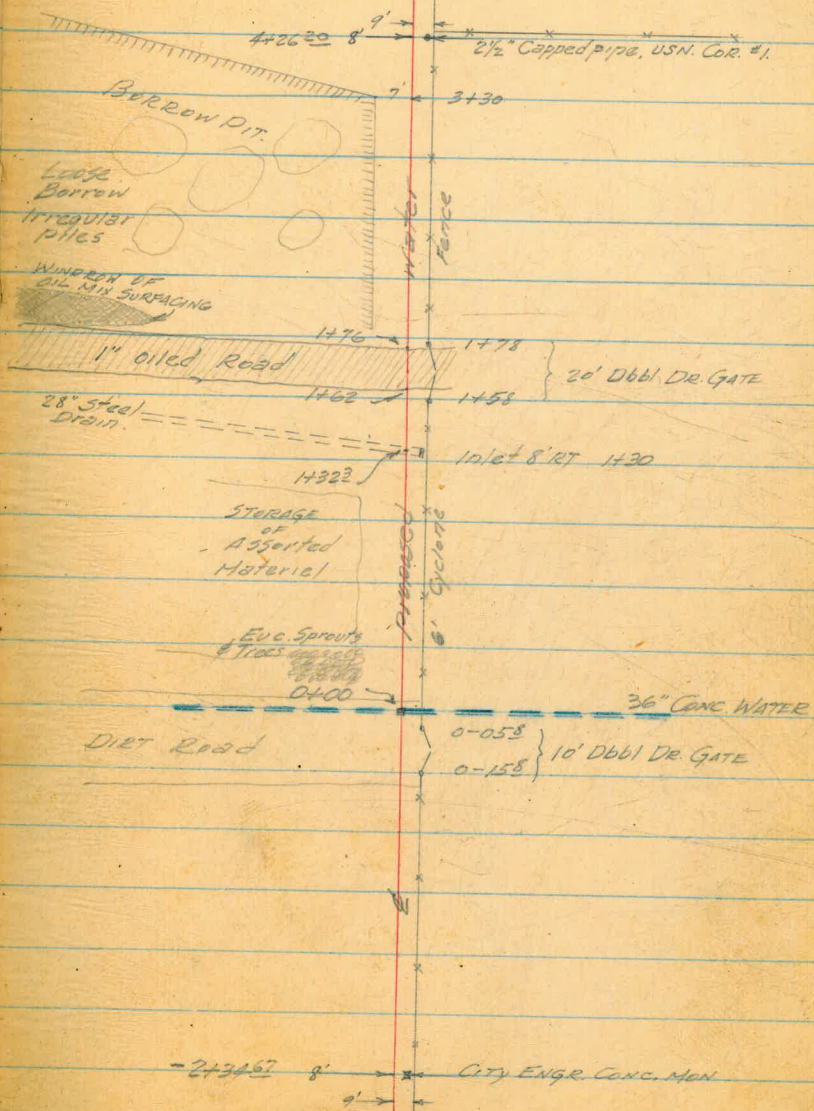 9'
4+26 20 8'
2½" Capped pipe, USN. COR. #1.
7' 3+30
BORROW PIT.
Loose
Borrow
Irregular
piles
Water
Fence
WINDROW OF
OIL MIX SURFACING
1+76
1+78
1" Oiled Road
20' Dbbl Dr. GATE
1+62
1+58
28" Steel
Drain.
Inlet 8' RT 1+30
1+32 3
STORAGE
OF
Assorted
Materiel
Proposed
6' Cyclone
Euc. Sprouts
& Trees
0+00
36" CONC. WATER
DIRT Road
0-05 8
0-15 8
10' Dbbl Dr. GATE
-2+34 67 8'
CITY ENGR. CONC. MON.
9'